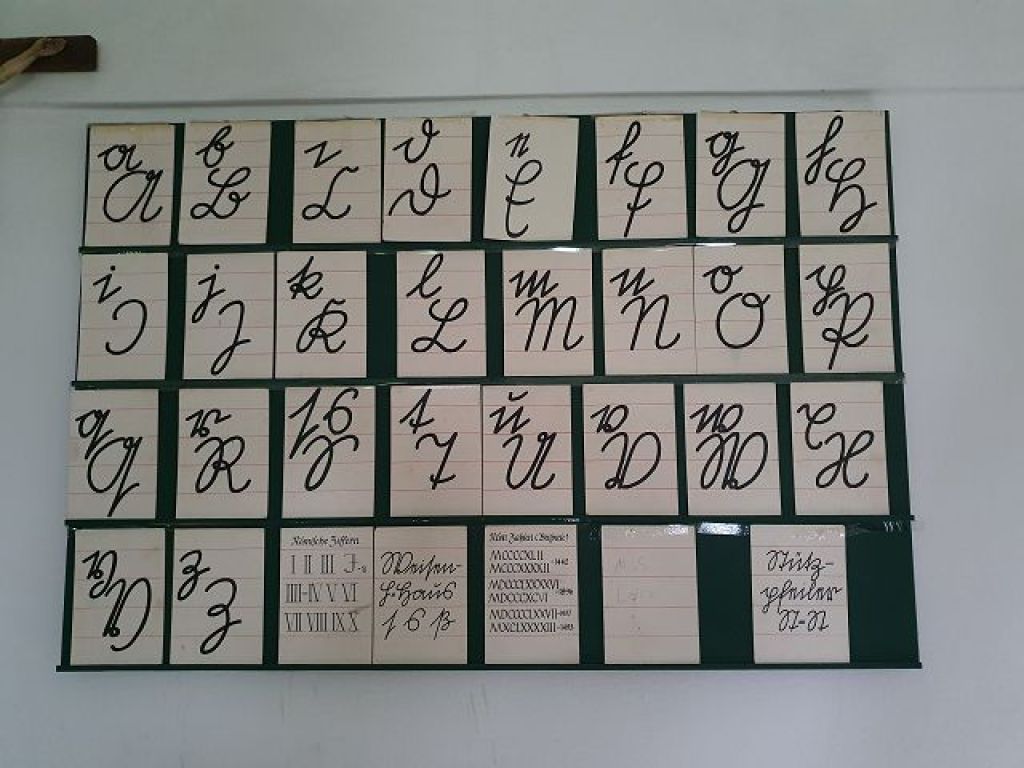 a A b B c C d D e E f F g G h H
i I j J k K l L m M n N o O p P
q Q r R ſ s S t T u U v V w W x X
y Y z Z
Römische Ziffern
I II III
IIII-IV V VI
VII VIII IX X
Weisen-
haus
ſ s ß
MCCCCXLII
MCCCXXXXII
MDCCLXXXXVI
MDCCCXCVI
MDCCCCLXXVII
MXCLXXXXIII
Stütz-
pfeiler
St-St